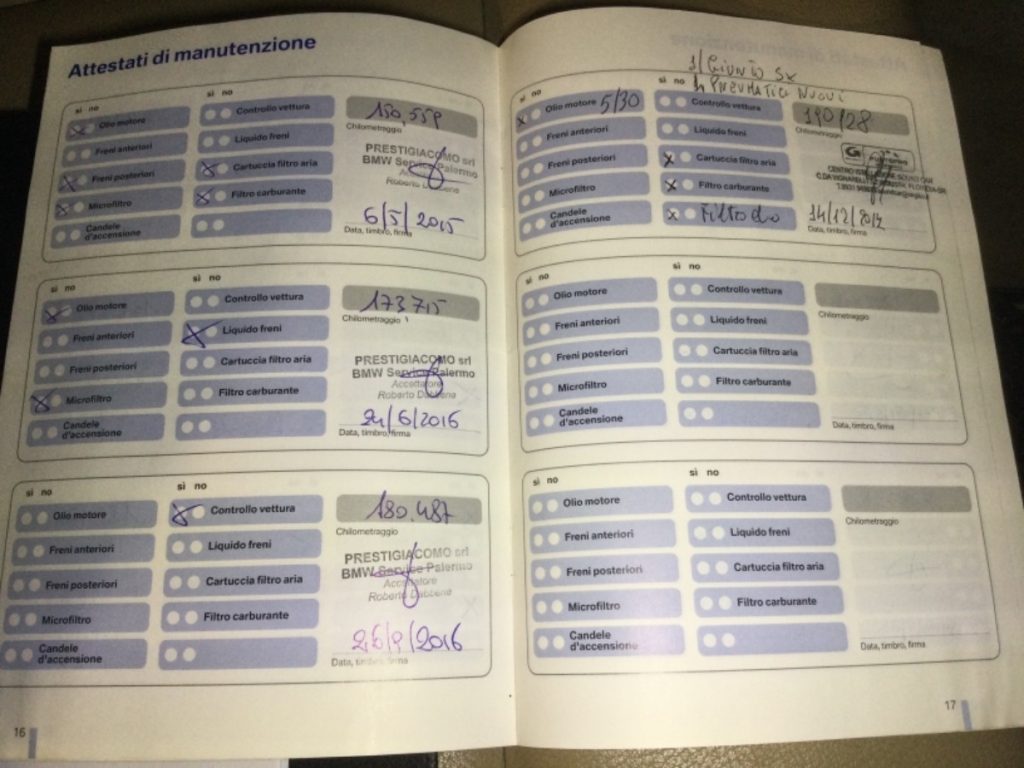 Attestati di manutenzione
sì no
sì no
Olio motore
Controllo vettura
150,559
Chilometraggio
Freni anteriori
Liquido freni
PRESTIGIACOMO srl
BMW Service Palermo
Roberto Dabbena
Freni posteriori
Cartuccia filtro aria
Microfiltro
Filtro carburante
6/5/2015
Data, timbro, firma
Candele
d'accensione
sì no
sì no
Olio motore
Controllo vettura
173715
Chilometraggio
Freni anteriori
Liquido freni
Freni posteriori
Cartuccia filtro aria
PRESTIGIACOMO srl
BMW Service Palermo
Accettatore
Roberto Dabbena
Microfiltro
Filtro carburante
24/6/2016
Data, timbro, firma
Candele
d'accensione
sì no
sì no
Olio motore
Controllo vettura
180.487
Chilometraggio
Freni anteriori
Liquido freni
PRESTIGIACOMO srl
BMW Service Palermo
Accettatore
Roberto Dabbena
Freni posteriori
Cartuccia filtro aria
Microfiltro
Filtro carburante
26/9/2016
Data, timbro, firma
Candele
d'accensione
16
1/ GIUNTO SX
PNEUMATICI NUOVI
sì no
sì no
Olio motore 5/30
Controllo vettura
Chilometraggio
Freni anteriori
Liquido freni
Freni posteriori
Cartuccia filtro aria
Microfiltro
Filtro carburante
Candele
d'accensione
Filtro
Data, timbro, firma
sì no
sì no
Olio motore
Controllo vettura
Chilometraggio
Freni anteriori
Liquido freni
Freni posteriori
Cartuccia filtro aria
Microfiltro
Filtro carburante
Candele
d'accensione
Data, timbro, firma
sì no
sì no
Olio motore
Controllo vettura
Chilometraggio
Freni anteriori
Liquido freni
Freni posteriori
Cartuccia filtro aria
Microfiltro
Filtro carburante
Candele
d'accensione
Data, timbro, firma
17